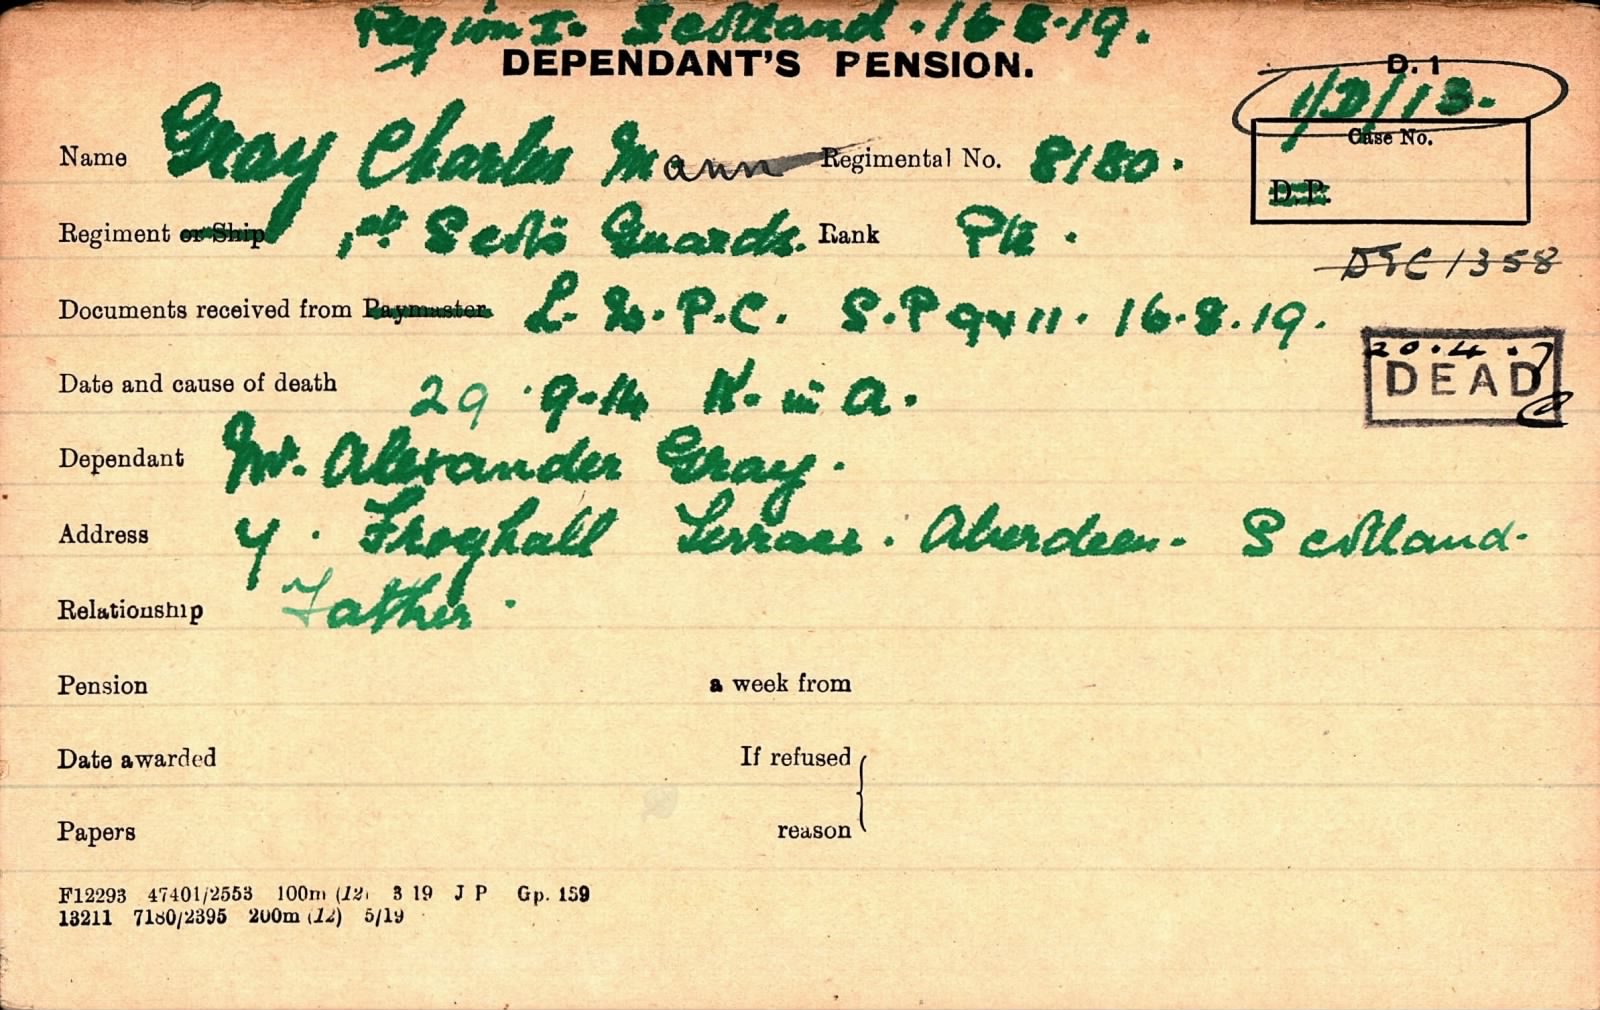 Region I. Scotland. 16.8.19.
DEPENDANT'S PENSION.
D. 1
1/D/
Name Gray Charles Mann Regimental No. 8180.
Case No.
D.P.
Regiment or Ship 1st Scots Guards. Rank Pte.
DEC/1358
Documents received from Paymaster. S.P. 11. 16.8.19.
20.4.
DEAD
Date and cause of death 29.9.14 K. in A.
Dependant Mr. Alexander Gray.
Address Froghall Terrace. Aberdeen. Scotland.
Relationship Father.
Pension a week from
Date awarded If refused
Papers reason
F12293 47401/2553 100m (12) 3 19 J P Gp. 159
13211 7180/2395 200m (12) 5/19